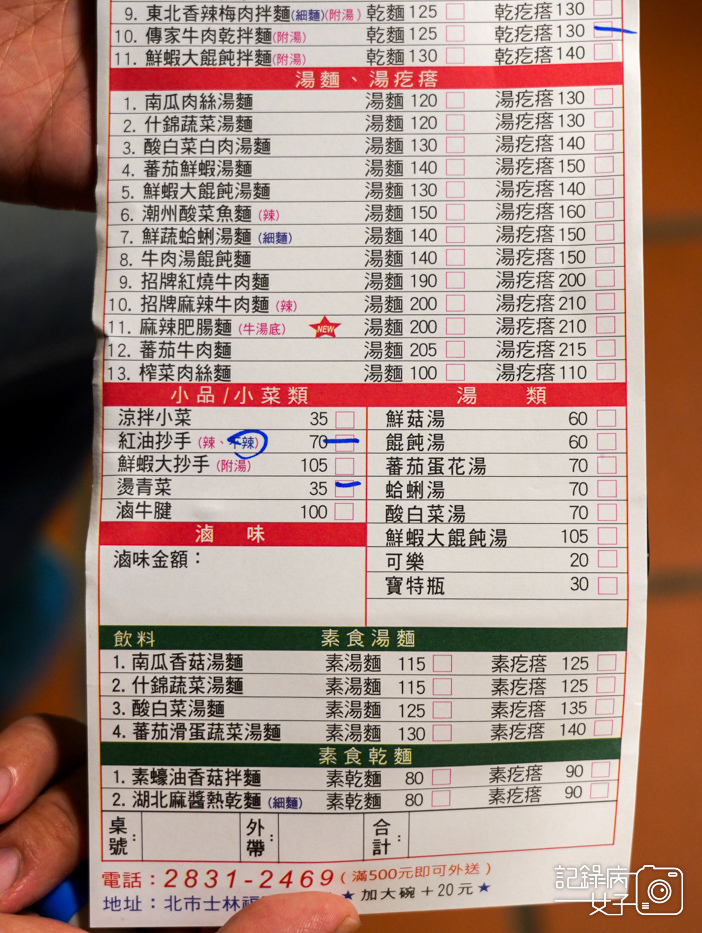 9. 東北香辣梅肉拌麵(細麵)(附湯) 乾麵125 乾疙瘩130
10. 傳家牛肉乾拌麵(附湯) 乾麵125 乾疙瘩130
11. 鮮蝦大餛飩拌麵(附湯) 乾麵130 乾疙瘩140
湯麵、湯疙瘩
1. 南瓜肉絲湯麵 湯麵120 湯疙瘩130
2. 什錦蔬菜湯麵 湯麵120 湯疙瘩130
3. 酸白菜白肉湯麵 湯麵130 湯疙瘩140
4. 蕃茄鮮蝦湯麵 湯麵140 湯疙瘩150
5. 鮮蝦大餛飩湯麵 湯麵130 湯疙瘩140
6. 潮州酸菜魚麵(辣) 湯麵150 湯疙瘩160
7. 鮮蔬蛤蜊湯麵(細麵) 湯麵140 湯疙瘩150
8. 牛肉湯餛飩麵 湯麵140 湯疙瘩150
9. 招牌紅燒牛肉麵 湯麵190 湯疙瘩200
10. 招牌麻辣牛肉麵(辣) 湯麵200 湯疙瘩210
11. 麻辣肥腸麵(牛湯底) NEW 湯麵200 湯疙瘩210
12. 蕃茄牛肉麵 湯麵205 湯疙瘩215
13. 榨菜肉絲麵 湯麵100 湯疙瘩110
小品/小菜類
涼拌小菜 35
紅油抄手(辣、不辣) 70
鮮蝦大抄手(附湯) 105
燙青菜 35
滷牛腱 100
滷味
滷味金額：
湯類
鮮菇湯 60
餛飩湯 60
蕃茄蛋花湯 70
蛤蜊湯 70
酸白菜湯 70
鮮蝦大餛飩湯 105
可樂 20
寶特瓶 30
飲料 素食湯麵
1. 南瓜香菇湯麵 素湯麵 115 素疙瘩 125
2. 什錦蔬菜湯麵 素湯麵 115 素疙瘩 125
3. 酸白菜湯麵 素湯麵 125 素疙瘩 135
4. 蕃茄滑蛋蔬菜湯麵 素湯麵 130 素疙瘩 140
素食乾麵
1. 素蠔油香菇拌麵 素乾麵 80 素疙瘩 90
2. 湖北麻醬熱乾麵(細麵) 素乾麵 80 素疙瘩 90
桌號： 外帶： 合計：
電話：2831-2469(滿500元即可外送)
地址：北市士林福 ★加大碗＋20元★
記錄病
女子